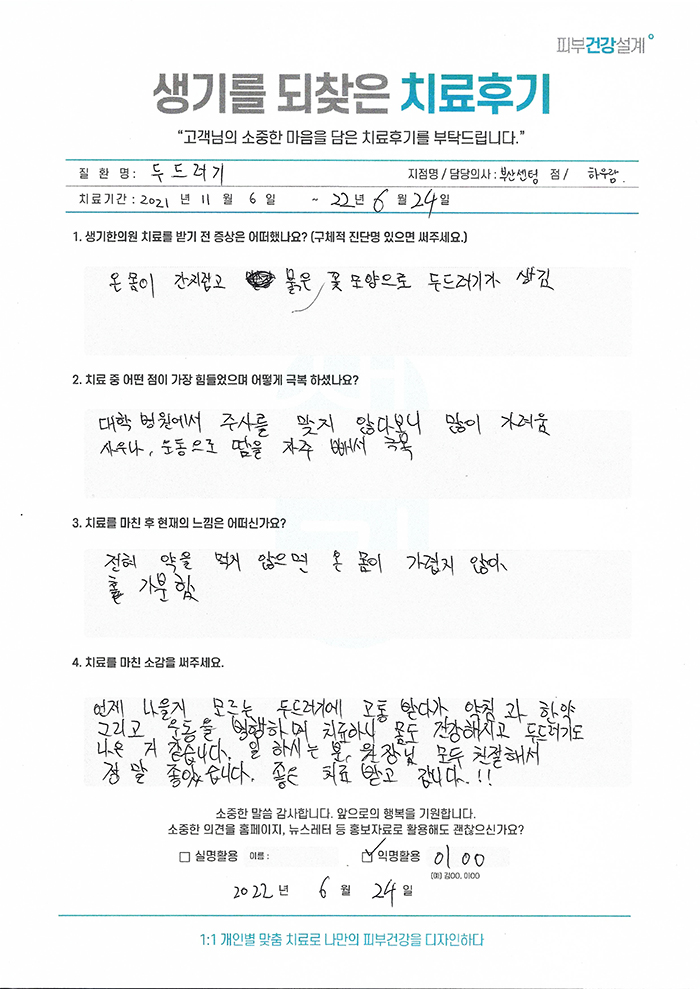 피부건강설계
생기를 되찾은 치료후기
“고객님의 소중한 마음을 담은 치료후기를 부탁드립니다.”
질 환 명 : 두드러기 지점명 / 담당의사 : 부산센텀 점 / 하우람.
치료기간 : 2021 년 11 월 6 일 ~ 22년 6 월 24일
1. 생기한의원 치료를 받기 전 증상은 어떠했나요? (구체적 진단명 있으면 써주세요.)
온 몸이 간지럽고 붉은 꽃 모양으로 두드러기가 생김
2. 치료 중 어떤 점이 가장 힘들었으며 어떻게 극복 하셨나요?
대학 병원에서 주사를 맞지 않다보니 많이 가려움
사우나, 운동으로 땀을 자주 빼서 극복
3. 치료를 마친 후 현재의 느낌은 어떠신가요?
전혀 약을 먹지 않으면 온 몸이 가렵지 않아,
홀가분함
4. 치료를 마친 소감을 써주세요.
언제 나을지 모르는 두드러기에 고통 받다가 약침과 한약
그리고 운동을 병행하며 치료하니 몸도 건강해지고 두드러기도
나은 거 같습니다. 일 하시는 분, 원장님 모두 친절해서
정말 좋았습니다. 좋은 치료 받고 갑니다.!!
소중한 말씀 감사합니다. 앞으로의 행복을 기원합니다.
소중한 의견을 홈페이지, 뉴스레터 등 홍보자료로 활용해도 괜찮으신가요?
실명활용 이름 : 익명활용 이00
(예) 김OO, 이OO
2022 년 6 월 24 일
1:1 개인별 맞춤 치료로 나만의 피부건강을 디자인하다